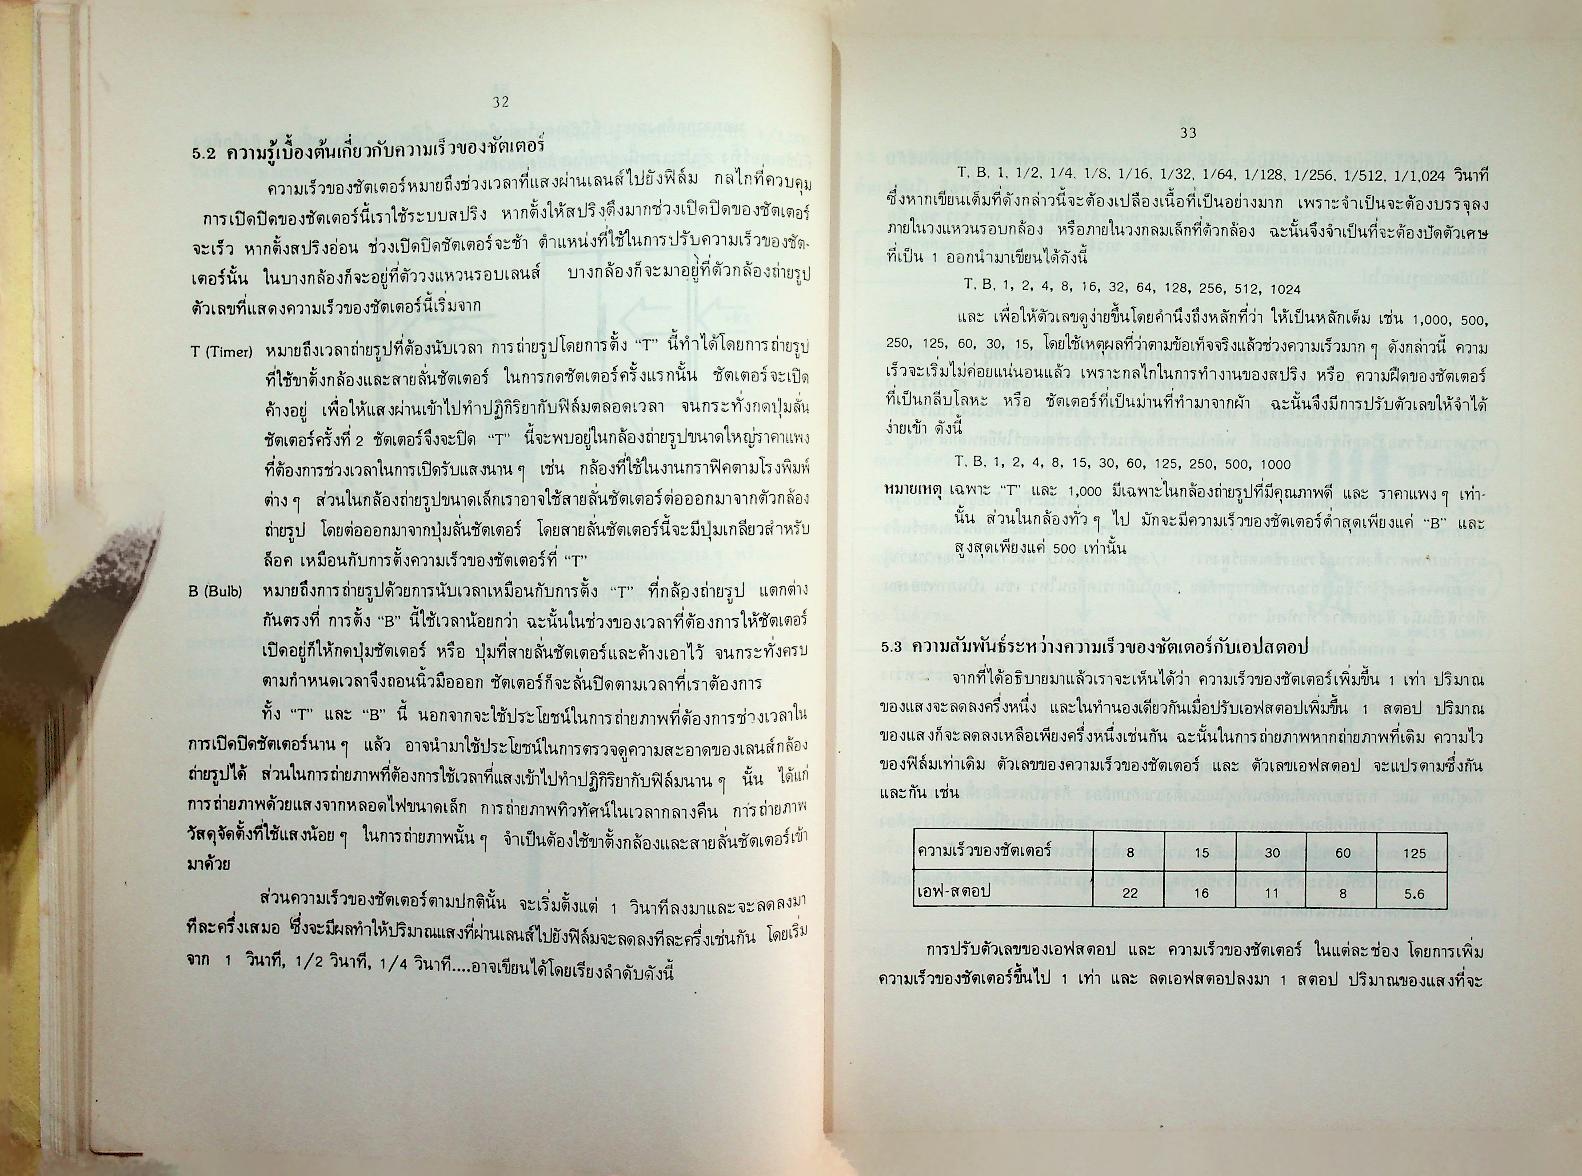 32
5.2 ความรู้เบื้องต้นเกี่ยวกับความเร็วของชัตเตอร์
ความเร็วของชัตเตอร์หมายถึงช่วงเวลาที่แสงผ่านเลนส์ไปยังฟิล์ม กลไกที่ควบคุม
การเปิดปิดของชัตเตอร์นี้เราใช้ระบบสปริง หากตั้งให้สปริงตึงมากช่วงเปิดปิดของชัตเตอร์
จะเร็ว หากตั้งสปริงอ่อน ช่วงเปิดปิดชัตเตอร์จะช้า ตำแหน่งที่ใช้ในการปรับความเร็วของชัต-
เตอร์นั้น ในบางกล้องก็จะอยู่ที่ตัววงแหวนรอบเลนส์ บางกล้องก็จะมาอยู่ที่ตัวกล้องถ่ายรูป
ตัวเลขที่แสดงความเร็วของชัตเตอร์นี้เริ่มจาก
T (Timer) หมายถึงเวลาถ่ายรูปที่ต้องนับเวลา การถ่ายรูปโดยการตั้ง “T” นี้ทำได้โดยการถ่ายรูป
ที่ใช้ขาตั้งกล้องและสายลั่นชัตเตอร์ ในการกดชัตเตอร์ครั้งแรกนั้น ชัตเตอร์จะเปิด
ค้างอยู่ เพื่อให้แสงผ่านเข้าไปทำปฏิกิริยากับฟิล์มตลอดเวลา จนกระทั่งกดปุ่มลั่น
ชัตเตอร์ครั้งที่ 2 ชัตเตอร์จึงจะปิด “T” นี้จะพบอยู่ในกล้องถ่ายรูปขนาดใหญ่ราคาแพง
ที่ต้องการช่วงเวลาในการเปิดรับแสงนาน ๆ เช่น กล้องที่ใช้ในงานกราฟิคตามโรงพิมพ์
ต่าง ๆ ส่วนในกล้องถ่ายรูปขนาดเล็กเราอาจใช้สายลั่นชัตเตอร์ต่อออกมาจากตัวกล้อง
ถ่ายรูป โดยต่อออกมาจากปุ่มลั่นชัตเตอร์ โดยสายลั่นชัตเตอร์นี้จะมีปุ่มเกลียวสำหรับ
ล็อค เหมือนกับการตั้งความเร็วของชัตเตอร์ที่ “T”
B (Bulb) หมายถึงการถ่ายรูปด้วยการนับเวลาเหมือนกับการตั้ง “T” ที่กล้องถ่ายรูป แตกต่าง
กันตรงที่ การตั้ง “B” นี้ใช้เวลาน้อยกว่า ฉะนั้นในช่วงของเวลาที่ต้องการให้ชัตเตอร์
เปิดอยู่ก็ให้กดปุ่มชัตเตอร์ หรือ ปุ่มที่สายลั่นชัตเตอร์และค้างเอาไว้ จนกระทั่งครบ
ตามกำหนดเวลาจึงถอนนิ้วมือออก ชัตเตอร์ก็จะลั่นปิดตามเวลาที่เราต้องการ
ทั้ง “T” และ “B” นี้ นอกจากจะใช้ประโยชน์ในการถ่ายภาพที่ต้องการช่วงเวลาใน
การเปิดปิดชัตเตอร์นาน ๆ แล้ว อาจนำมาใช้ประโยชน์ในการตรวจดูความสะอาดของเลนส์กล้อง
ถ่ายรูปได้ ส่วนในการถ่ายภาพที่ต้องการใช้เวลาที่แสงเข้าไปทำปฏิกิริยากับฟิล์มนาน ๆ นั้น ได้แก่
การถ่ายภาพด้วยแสงจากหลอดไฟขนาดเล็ก การถ่ายภาพทิวทัศน์ในเวลากลางคืน การถ่ายภาพ
วัสดุจัดตั้งที่ใช้แสงน้อย ๆ ในการถ่ายภาพนั้น ๆ จำเป็นต้องใช้ขาตั้งกล้องและสายลั่นชัตเตอร์เข้า
มาด้วย
ส่วนความเร็วของชัตเตอร์ตามปกตินั้น จะเริ่มตั้งแต่ 1 วินาทีลงมาและจะลดลงมา
ทีละครึ่งเสมอ ซึ่งจะมีผลทำให้ปริมาณแสงที่ผ่านเลนส์ไปยังฟิล์มจะลดลงทีละครึ่งเช่นกัน โดยเริ่ม
จาก 1 วินาที, 1/2 วินาที, 1/4 วินาที....อาจเขียนได้โดยเรียงลำดับดังนี้
33
T, B, 1, 1/2, 1/4, 1/8, 1/16, 1/32, 1/64, 1/128, 1/256, 1/512, 1/1,024 วินาที
ซึ่งหากเขียนเต็มที่ดังกล่าวนี้จะต้องเปลืองเนื้อที่เป็นอย่างมาก เพราะจำเป็นจะต้องบรรจุลง
ภายในวงแหวนรอบกล้อง หรือภายในวงกลมเล็กที่ตัวกล้อง ฉะนั้นจึงจำเป็นที่จะต้องปัดตัวเศษ
ที่เป็น 1 ออกนำมาเขียนได้ดังนี้
T, B, 1, 2, 4, 8, 16, 32, 64, 128, 256, 512, 1024
และ เพื่อให้ตัวเลขดูง่ายขึ้นโดยคำนึงถึงหลักที่ว่า ให้เป็นหลักเต็ม เช่น 1,000, 500,
250, 125, 60, 30, 15, โดยใช้เหตุผลที่ว่าตามข้อเท็จจริงแล้วช่วงความเร็วมาก ๆ ดังกล่าวนี้ ความ
เร็วจะเริ่มไม่ค่อยแน่นอนแล้ว เพราะกลไกในการทำงานของสปริง หรือ ความฝืดของชัตเตอร์
ที่เป็นกลีบโลหะ หรือ ชัตเตอร์ที่เป็นม่านที่ทำมาจากผ้า ฉะนั้นจึงมีการปรับตัวเลขให้จำได้
ง่ายเข้า ดังนี้
T, B, 1, 2, 4, 8, 15, 30, 60, 125, 250, 500, 1000
หมายเหตุ เฉพาะ “T” และ 1,000 มีเฉพาะในกล้องถ่ายรูปที่มีคุณภาพดี และ ราคาแพง ๆ เท่า-
นั้น ส่วนในกล้องทั่ว ๆ ไป มักจะมีความเร็วของชัตเตอร์ต่ำสุดเพียงแค่ “B” และ
สูงสุดเพียงแค่ 500 เท่านั้น
5.3 ความสัมพันธ์ระหว่างความเร็วของชัตเตอร์กับเอปสตอป
จากที่ได้อธิบายมาแล้วเราจะเห็นได้ว่า ความเร็วของชัตเตอร์เพิ่มขึ้น 1 เท่า ปริมาณ
ของแสงจะลดลงครึ่งหนึ่ง และในทำนองเดียวกันเมื่อปรับเอฟสตอปเพิ่มขึ้น 1 สตอป ปริมาณ
ของแสงก็จะลดลงเหลือเพียงครึ่งหนึ่งเช่นกัน ฉะนั้นในการถ่ายภาพหากถ่ายภาพที่เดิม ความไว
ของฟิล์มเท่าเดิม ตัวเลขของความเร็วของชัตเตอร์ และ ตัวเลขเอฟสตอป จะแปรตามซึ่งกัน
และกัน เช่น
ความเร็วของชัตเตอร์ 8 15 30 60 125
เอฟ-สตอป 22 16 11 8 5.6
การปรับตัวเลขของเอฟสตอป และ ความเร็วของชัตเตอร์ ในแต่ละช่อง โดยการเพิ่ม
ความเร็วของชัตเตอร์ขึ้นไป 1 เท่า และ ลดเอฟสตอปลงมา 1 สตอป ปริมาณของแสงที่จะ